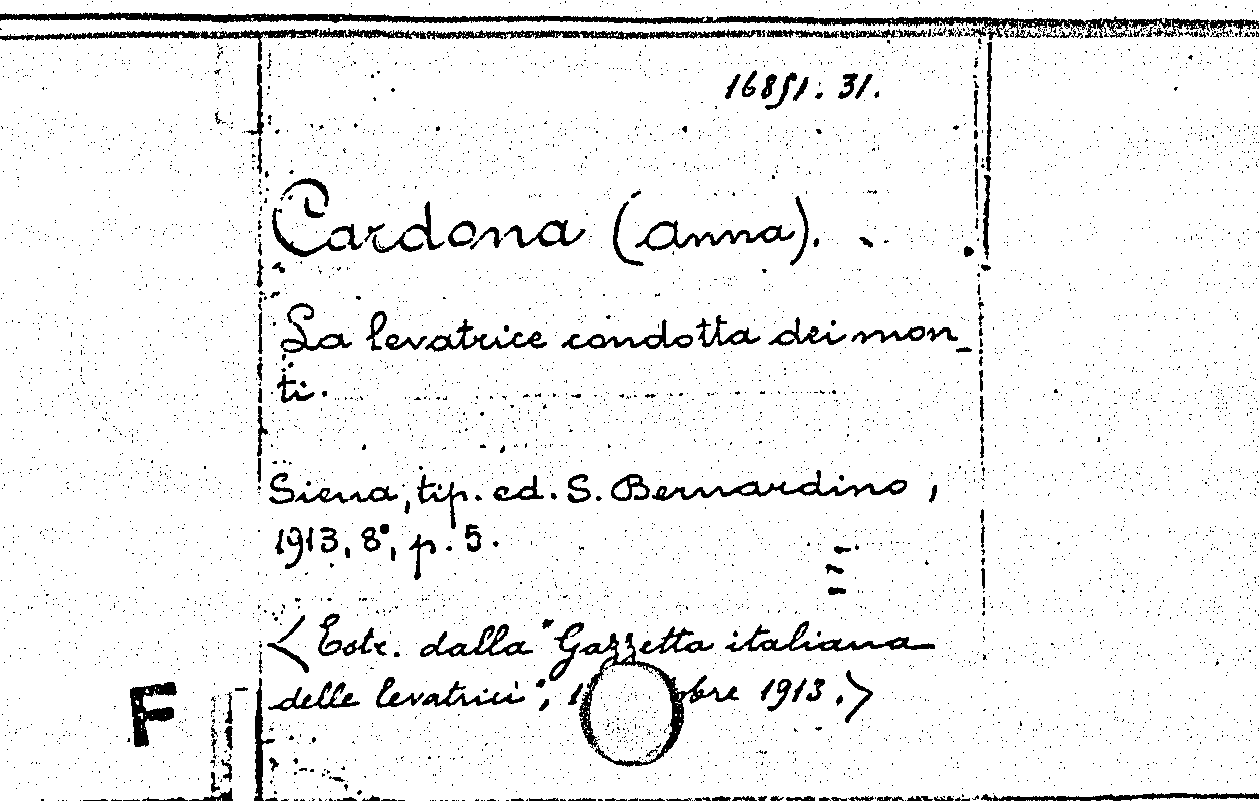 16851. 31.
Cardona (Anna).
La levatrice condotta dei mon-
ti.
Siena, tip. ed. S. Bernardino,
1913, 8°, p. 5.
<Estr. dalla "Gazzetta italiana
delle levatrici", 1913.>
F